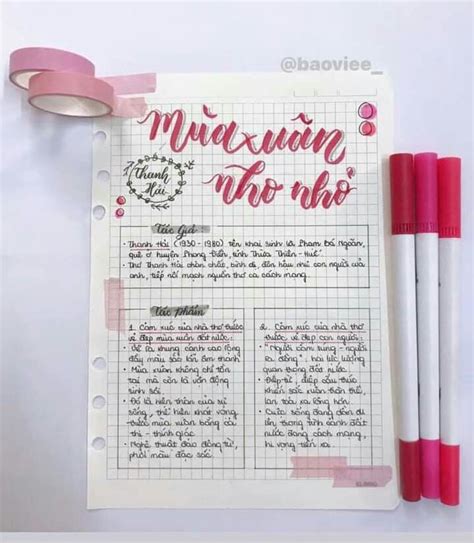 @baoviee_
Mùa xuân
nho nhỏ
Thanh
Hải
Tác Giả
• Thanh Hải (1930 - 1980) tên khai sinh là Phạm Bá Ngoãn,
quê ở huyện Phong Điền, tỉnh Thừa Thiên - Huế.
• Thơ Thanh Hải chân chất, bình dị, đôn hậu như con người của
anh, tiếp nối mạch nguồn thơ ca cách mạng.
Tác Phẩm
1. Cảm xúc của nhà thơ trước
vẻ đẹp mùa xuân đất nước:
• Vẽ là khung cảnh cao rộng
đầy màu sắc lẫn âm thanh
• Mùa xuân không chỉ tồn
tại mà còn là vận động
sinh sôi
• Đó là hiện thân của sự
sống, thể hiện khát vọng
trước mùa xuân bằng cả
thị - thính giác
• Nghệ thuật đảo động từ,
phối màu đặc sắc.
2. Cảm xúc của nhà thơ
trước vẻ đẹp con người:
• "Người cầm súng - người
ra đồng": hai lực lượng
quan trọng đất nước
• Điệp từ, điệp cấu trúc
khiến sắc xuân thấm thía,
lan toả xa rộng hơn
• Cuộc sống đang dần đi
lên trong tình cảnh đất
nước đang cách mạng,
hi vọng tiến xa.
KLONG